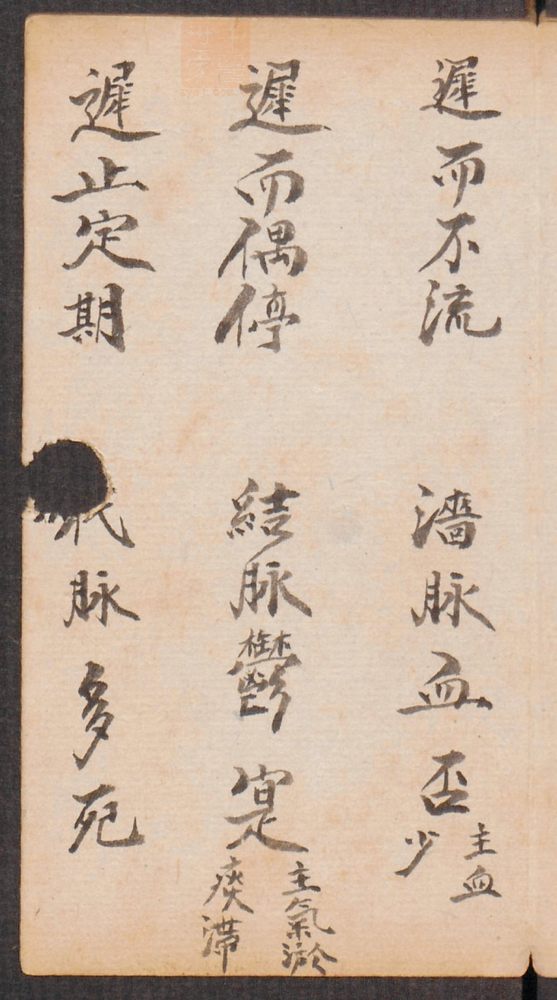 遲而不流 濇脉血否 主血少
遲而偶停 結脉鬱寔 主氣淤痰滯
遲止定期 代脉多死